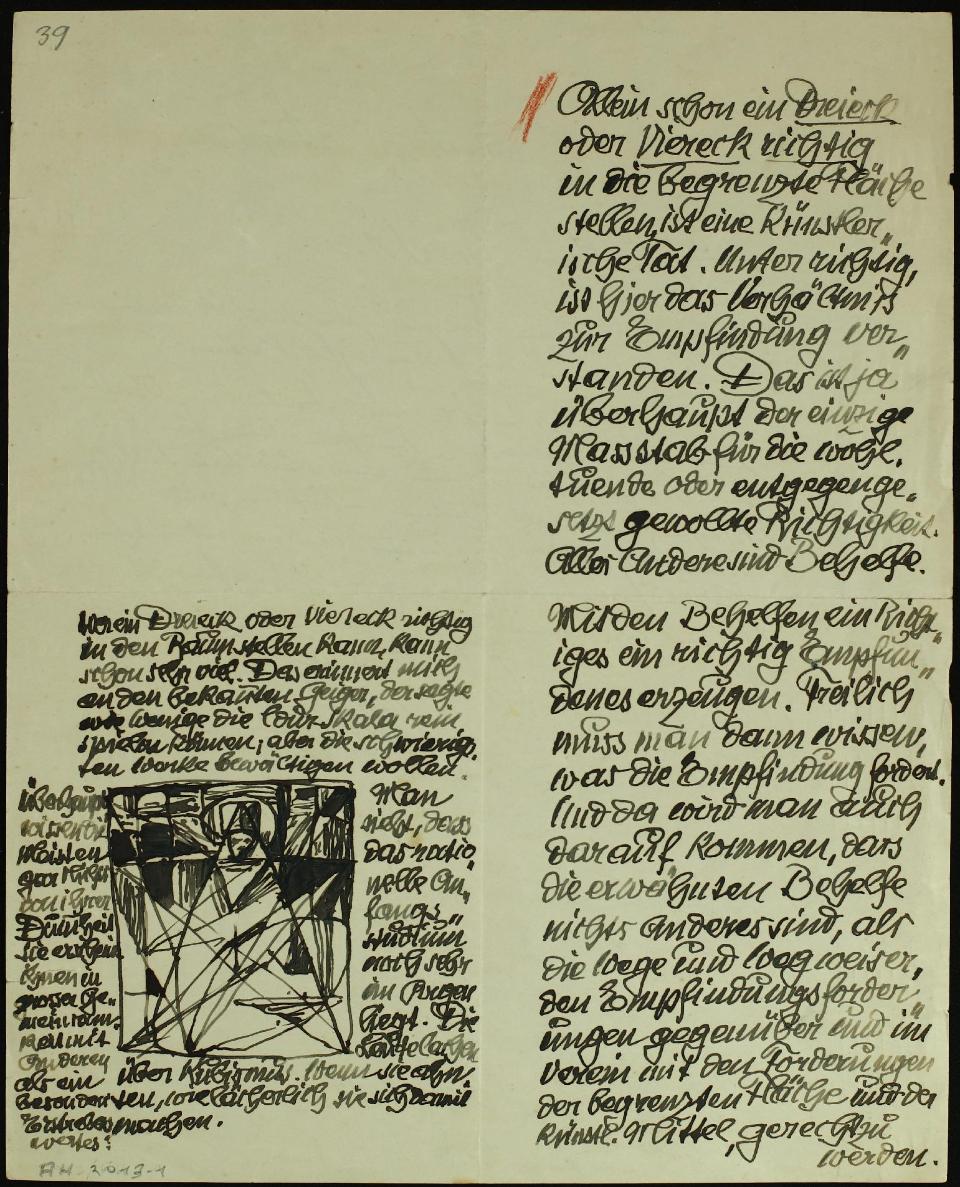 39
Allein schon ein Dreieck
oder Viereck richtig
in die begrenzte Fläche
stellen, ist eine Künstler„
ische Tat. Unter richtig,
ist hier das Verhältnis
zur Empfindung ver„
standen. Das ist ja
überhaupt der einzige
Massstab für die wohl„
tuende oder entgegenge„
setzt gewollte Richtigkeit.
Alles Andere sind Behelfe.
Mit den Behelfen ein Richt„
iges ein richtig Empfun„
denes erzeugen. Freilich
muss man dann wissen,
was die Empfindung fordert.
Und da wird man auch
darauf kommen, dass
die erwähnten Behelfe
nichts Anderes sind, als
die Wege und Wegweiser,
den Empfindungsforder„
ungen gegenüber und im
Verein mit den Forderungen
der begrenzten Fläche und der
Künstl. Mittel, gerecht zu
werden.
Wer ein Dreieck oder Viereck richtig
in den Raum stellen kann, kann
schon sehr viel. Das erinnert mich
an den bekannten Geiger, der sagte
wie wenige die Cdur Skala rein
spielen können, aber die schwierigs„
ten Werke bewältigen wollen.
Man
sieht, dass
das ratio„
nelle An„
fangs„
studium
noch sehr
im Argen
liegt. Die
Leute lachen
über Kubismus. Wenn sie ahn„
ten, wie lächerlich sie sich damit
machen.
Überhaupt
wissen die
Meisten
gar nichts
von ihrer
Dummheit
sie
ihnen in
grosser Ge„
meinsam„
keit mit
Anderen
als ein
besonders
Erstrebens
wertes!
AH 2013-1